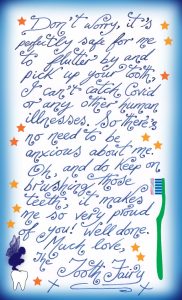 Don't worry, it's
perfectly safe for me
to flutter by and
pick up your tooth.
I can't catch Covid
or any other human
illnesses. So there's
no need to be
anxious about me.
Oh, and do keep on
brushing those
teeth, it makes
me so very proud
of you! Well done.
Much love,
The Tooth Fairy
x x